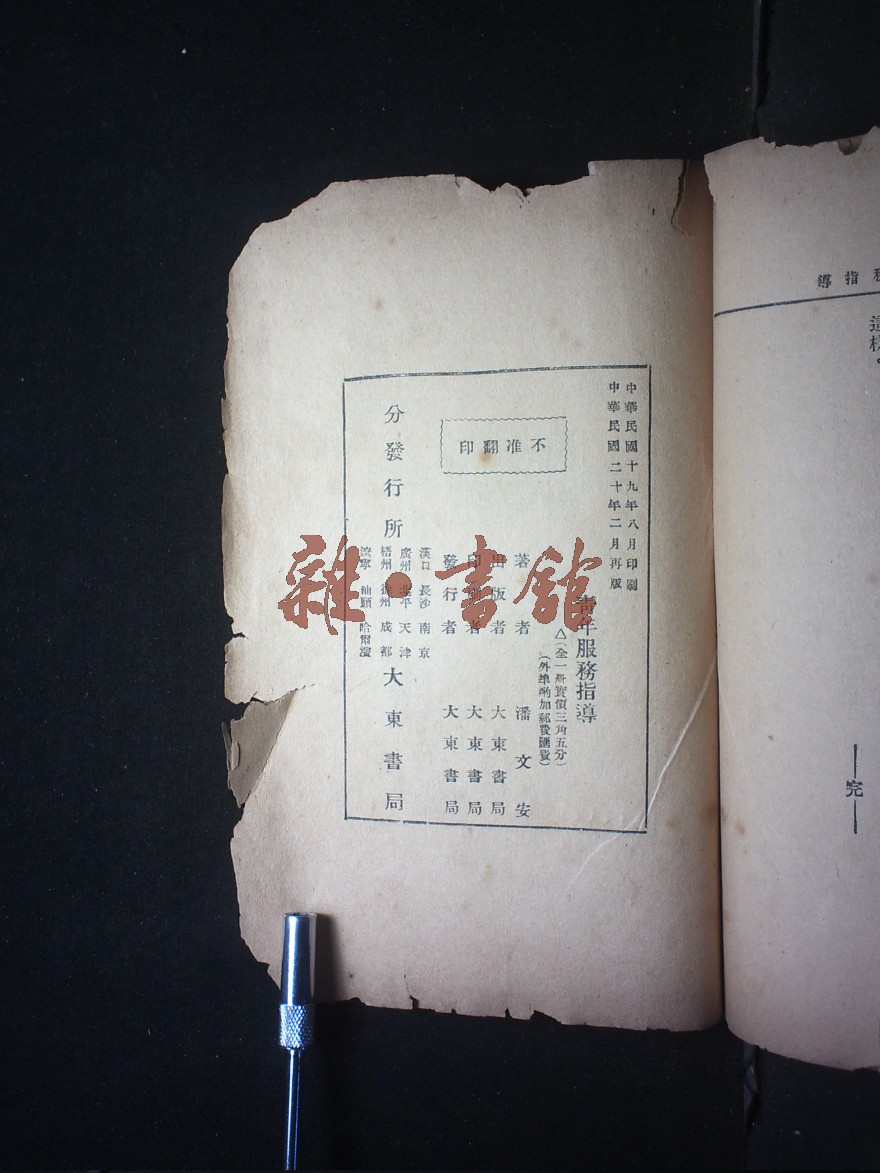 中華民國十九年八月印刷
中華民國二十年二月再版
青年服務指導
△(全一冊實價三角五分)
(外埠酌加郵費匯費)
著者 潘文安
出版者 大東書局
印刷者 大東書局
發行者 大東書局
不准翻印
分發行所
漢口 長沙 南京
廣州 北平 天津
梧州 徐州 成都
遼寧 汕頭 哈爾濱
大東書局
指導
這樣。
——完——
雜·書館